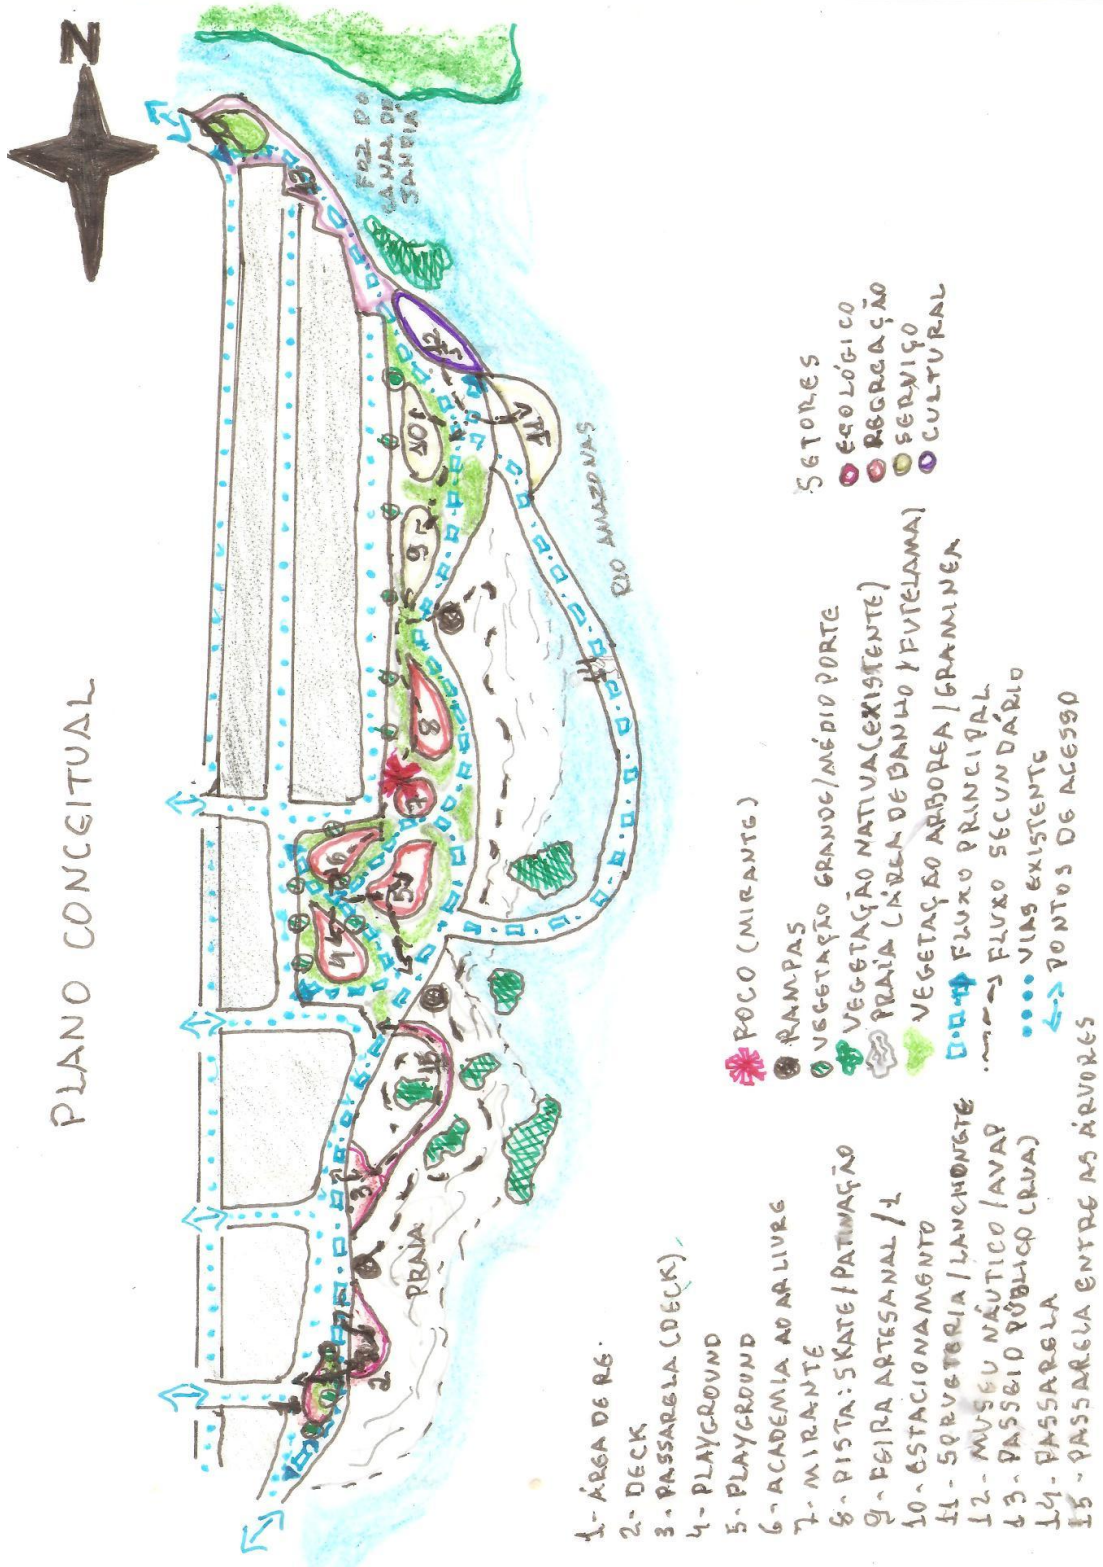 PLANO CONCEITUAL
N
FOZ DO
CANAL DE
SANTA
RIO AMAZONAS
PRAIA
1
2
3
4
5
6
7
8
9
10
11
12
13
14
15
1- ÁREA DE RE.
2- DECK
3- PASSARELA (DECK)
4- PLAYGROUND
5- PLAYGROUND
6- ACADEMIA AO AR LIVRE
7- MIRANTE
8- PISTA: SKATE/PATINAÇÃO
9- FEIRA ARTESANAL /1
10- ESTACIONAMENTO
11- SORVETERIA/LANCHONETE
12- MUSEU NÁUTICO/AVAP
13- PASSEIO PÚBLICO (RUA)
14- PASSARELA
15- PASSARELA ENTRE AS ÁRVORES
FOCO (MIRANTE)
RAMPAS
VEGETAÇÃO GRANDE/MÉDIO PORTE
VEGETAÇÃO NATIVA (EXISTENTE)
PRAIA (ÁREA DE BANHO / FUTELAMA)
VEGETAÇÃO ARBOREA/GRAMINEA
FLUXO PRINCIPAL
FLUXO SECUNDÁRIO
VIAS EXISTENTE
PONTOS DE ACESSO
SETORES
ECOLÓGICO
RECREAÇÃO
SERVIÇO
CULTURAL